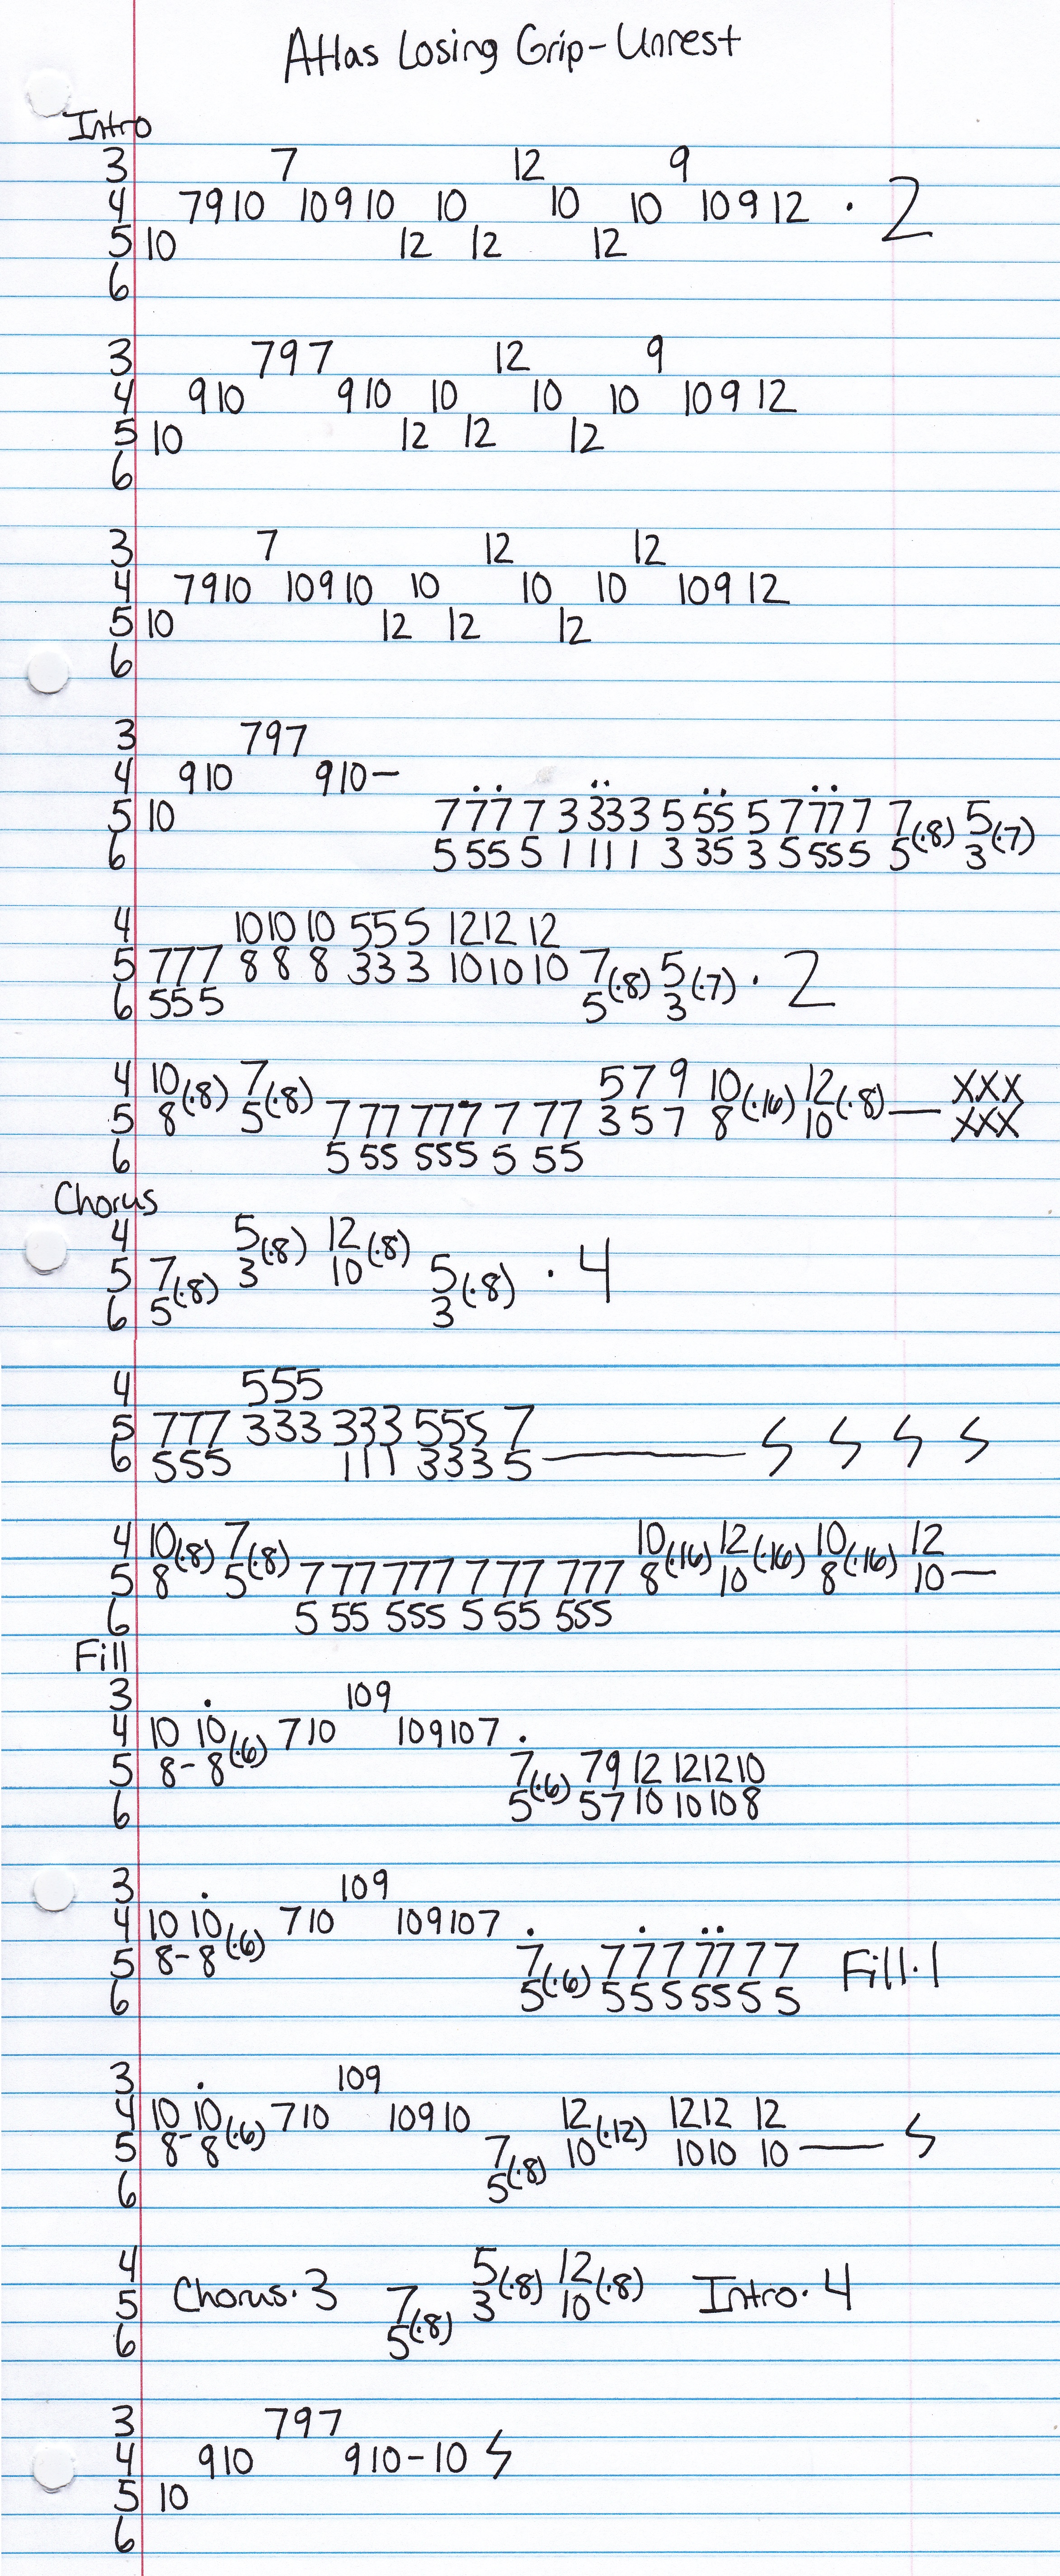 Atlas Losing Grip - Unrest
Intro
3 7 12 9
4 7 9 10 10 9 10 10 10 10 10 9 12 · 2
5 10 12 12 12
6
3 7 9 7 12 9
4 9 10 9 10 10 10 10 10 9 12
5 10 12 12 12
6
3 7 12 12
4 7 9 10 10 9 10 10 10 10 10 9 12
5 10 12 12 12
6
3 7 9 7
4 9 10 9 10 —
5 10 7 7 7 7 3 3 3 3 5 5 5 5 7 7 7 7 7(·8) 5(·7)
6 5 5 5 5 1 1 1 1 3 3 5 3 5 5 5 5 5 3
4 10 10 10 5 5 5 12 12 12
5 7 7 7 8 8 8 3 3 3 10 10 10 7(·8) 5(·7) · 2
6 5 5 5 5 3
4 10(·8) 7(·8) 5 7 9 10(·16) 12(·8) — XXX
5 8 5 7 7 7 7 7 7 7 7 7 3 5 7 8 10 XXX
6 5 5 5 5 5 5 5 5 5
Chorus
4 5(·8) 12(·8)
5 7(·8) 3 10 5(·8) · 4
6 5 3
4 5 5 5
5 7 7 7 3 3 3 3 3 3 5 5 5 7
6 5 5 5 1 1 1 3 3 3 5 —
4 10(·8) 7(·8) 10(·16) 12(·16) 10(·16) 12
5 8 5 7 7 7 7 7 7 7 7 7 7 7 7 8 10 8 10 —
6 5 5 5 5 5 5 5 5 5 5 5 5
Fill
3 10 9
4 10 10(·6) 7 10 10 9 10 7
5 8 - 8 7(·6) 7 9 12 12 12 10
6 5 5 7 10 10 10 8
3 10 9
4 10 10(·6) 7 10 10 9 10 7
5 8 - 8 7(·6) 7 7 7 7 7 7 7 Fill · 1
6 5 5 5 5 5 5 5 5
3 10 9
4 10 10(·6) 7 10 10 9 10 12(·12) 12 12 12
5 8 - 8 7(·8) 10 10 10 10 —
6 5
4 5(·8) 12(·8)
5 Chorus · 3 7(·8) 3 10 Intro · 4
6 5
3 7 9 7
4 9 10 9 10 - 10
5 10
6